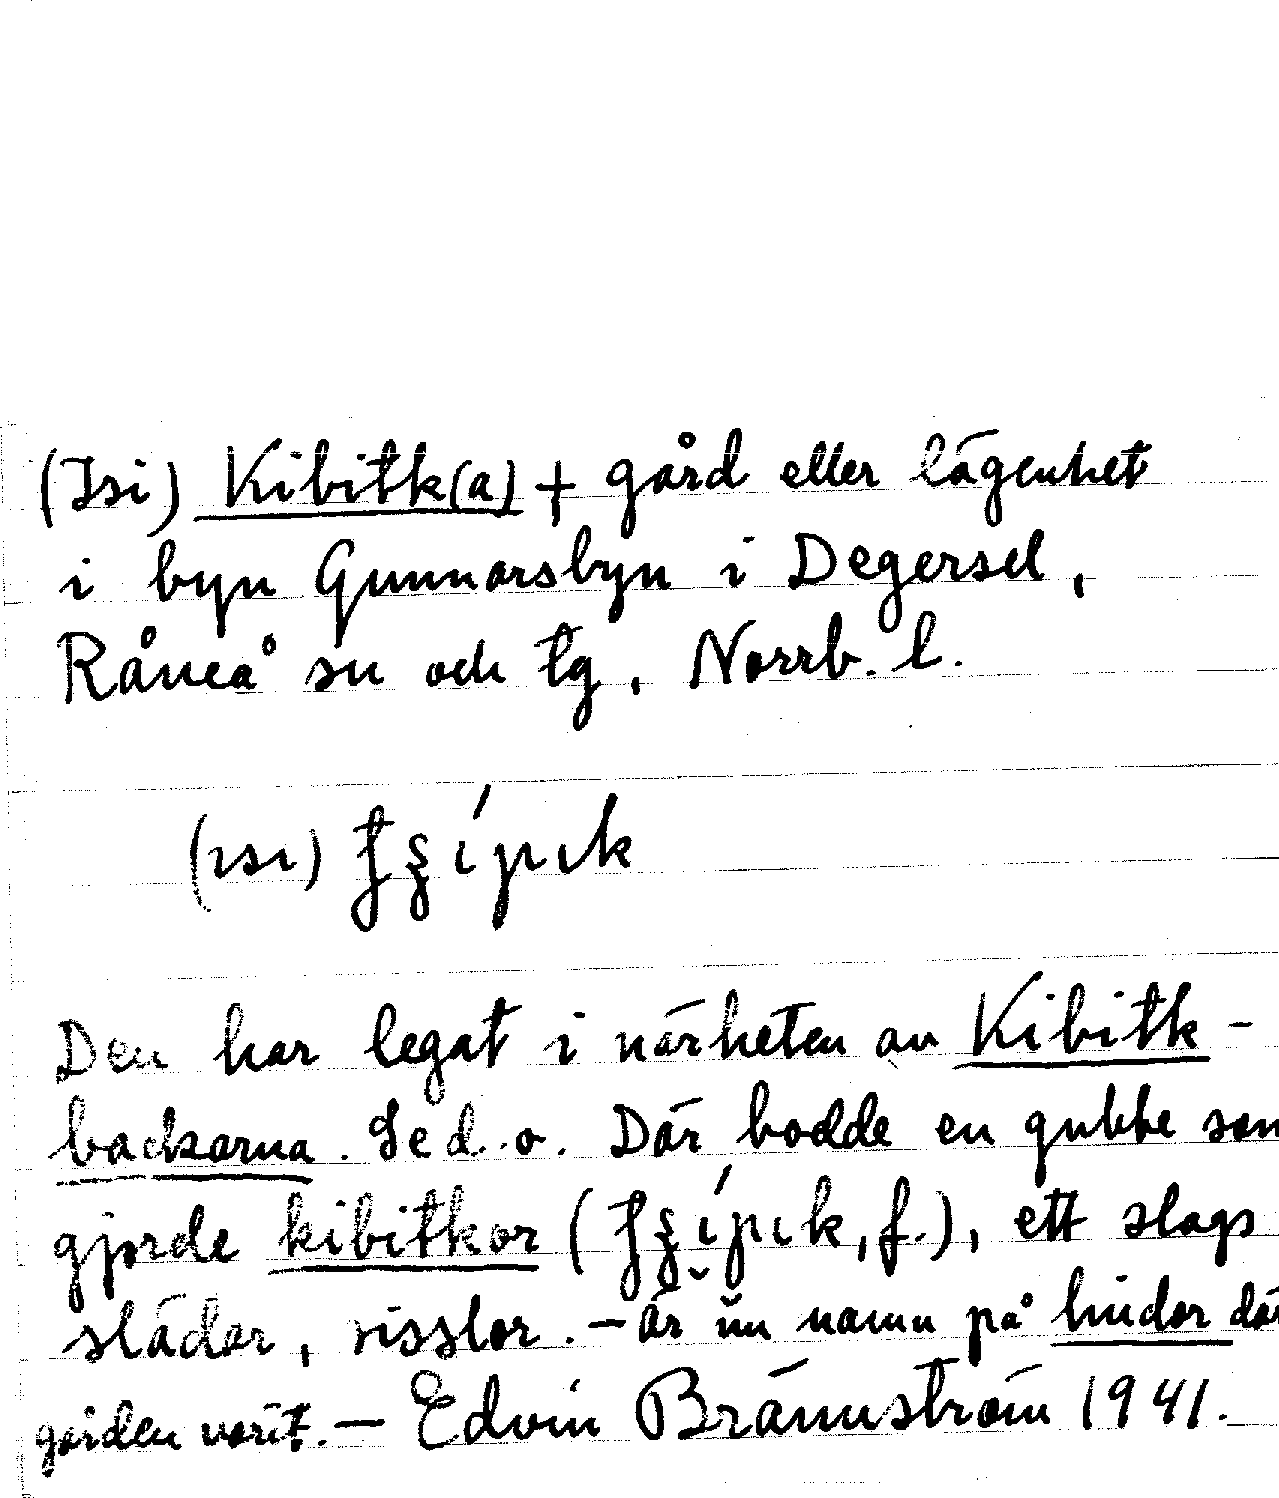 (Isi) Kibitk(a) + gård eller lägenhet
i byn Gunnarsbyn i Degersel,
Råneå sn och tg, Norrb. l.
(ɪsɪ)
Den har legat i närheten av Kibitk-
backarna. Se d. o. Där bodde en gubbe som
gjorde kibitkor (f.), ett slags
slädar, risslor. – är nu namn på lindor där
gården varit. – Edvin Brännström 1941.